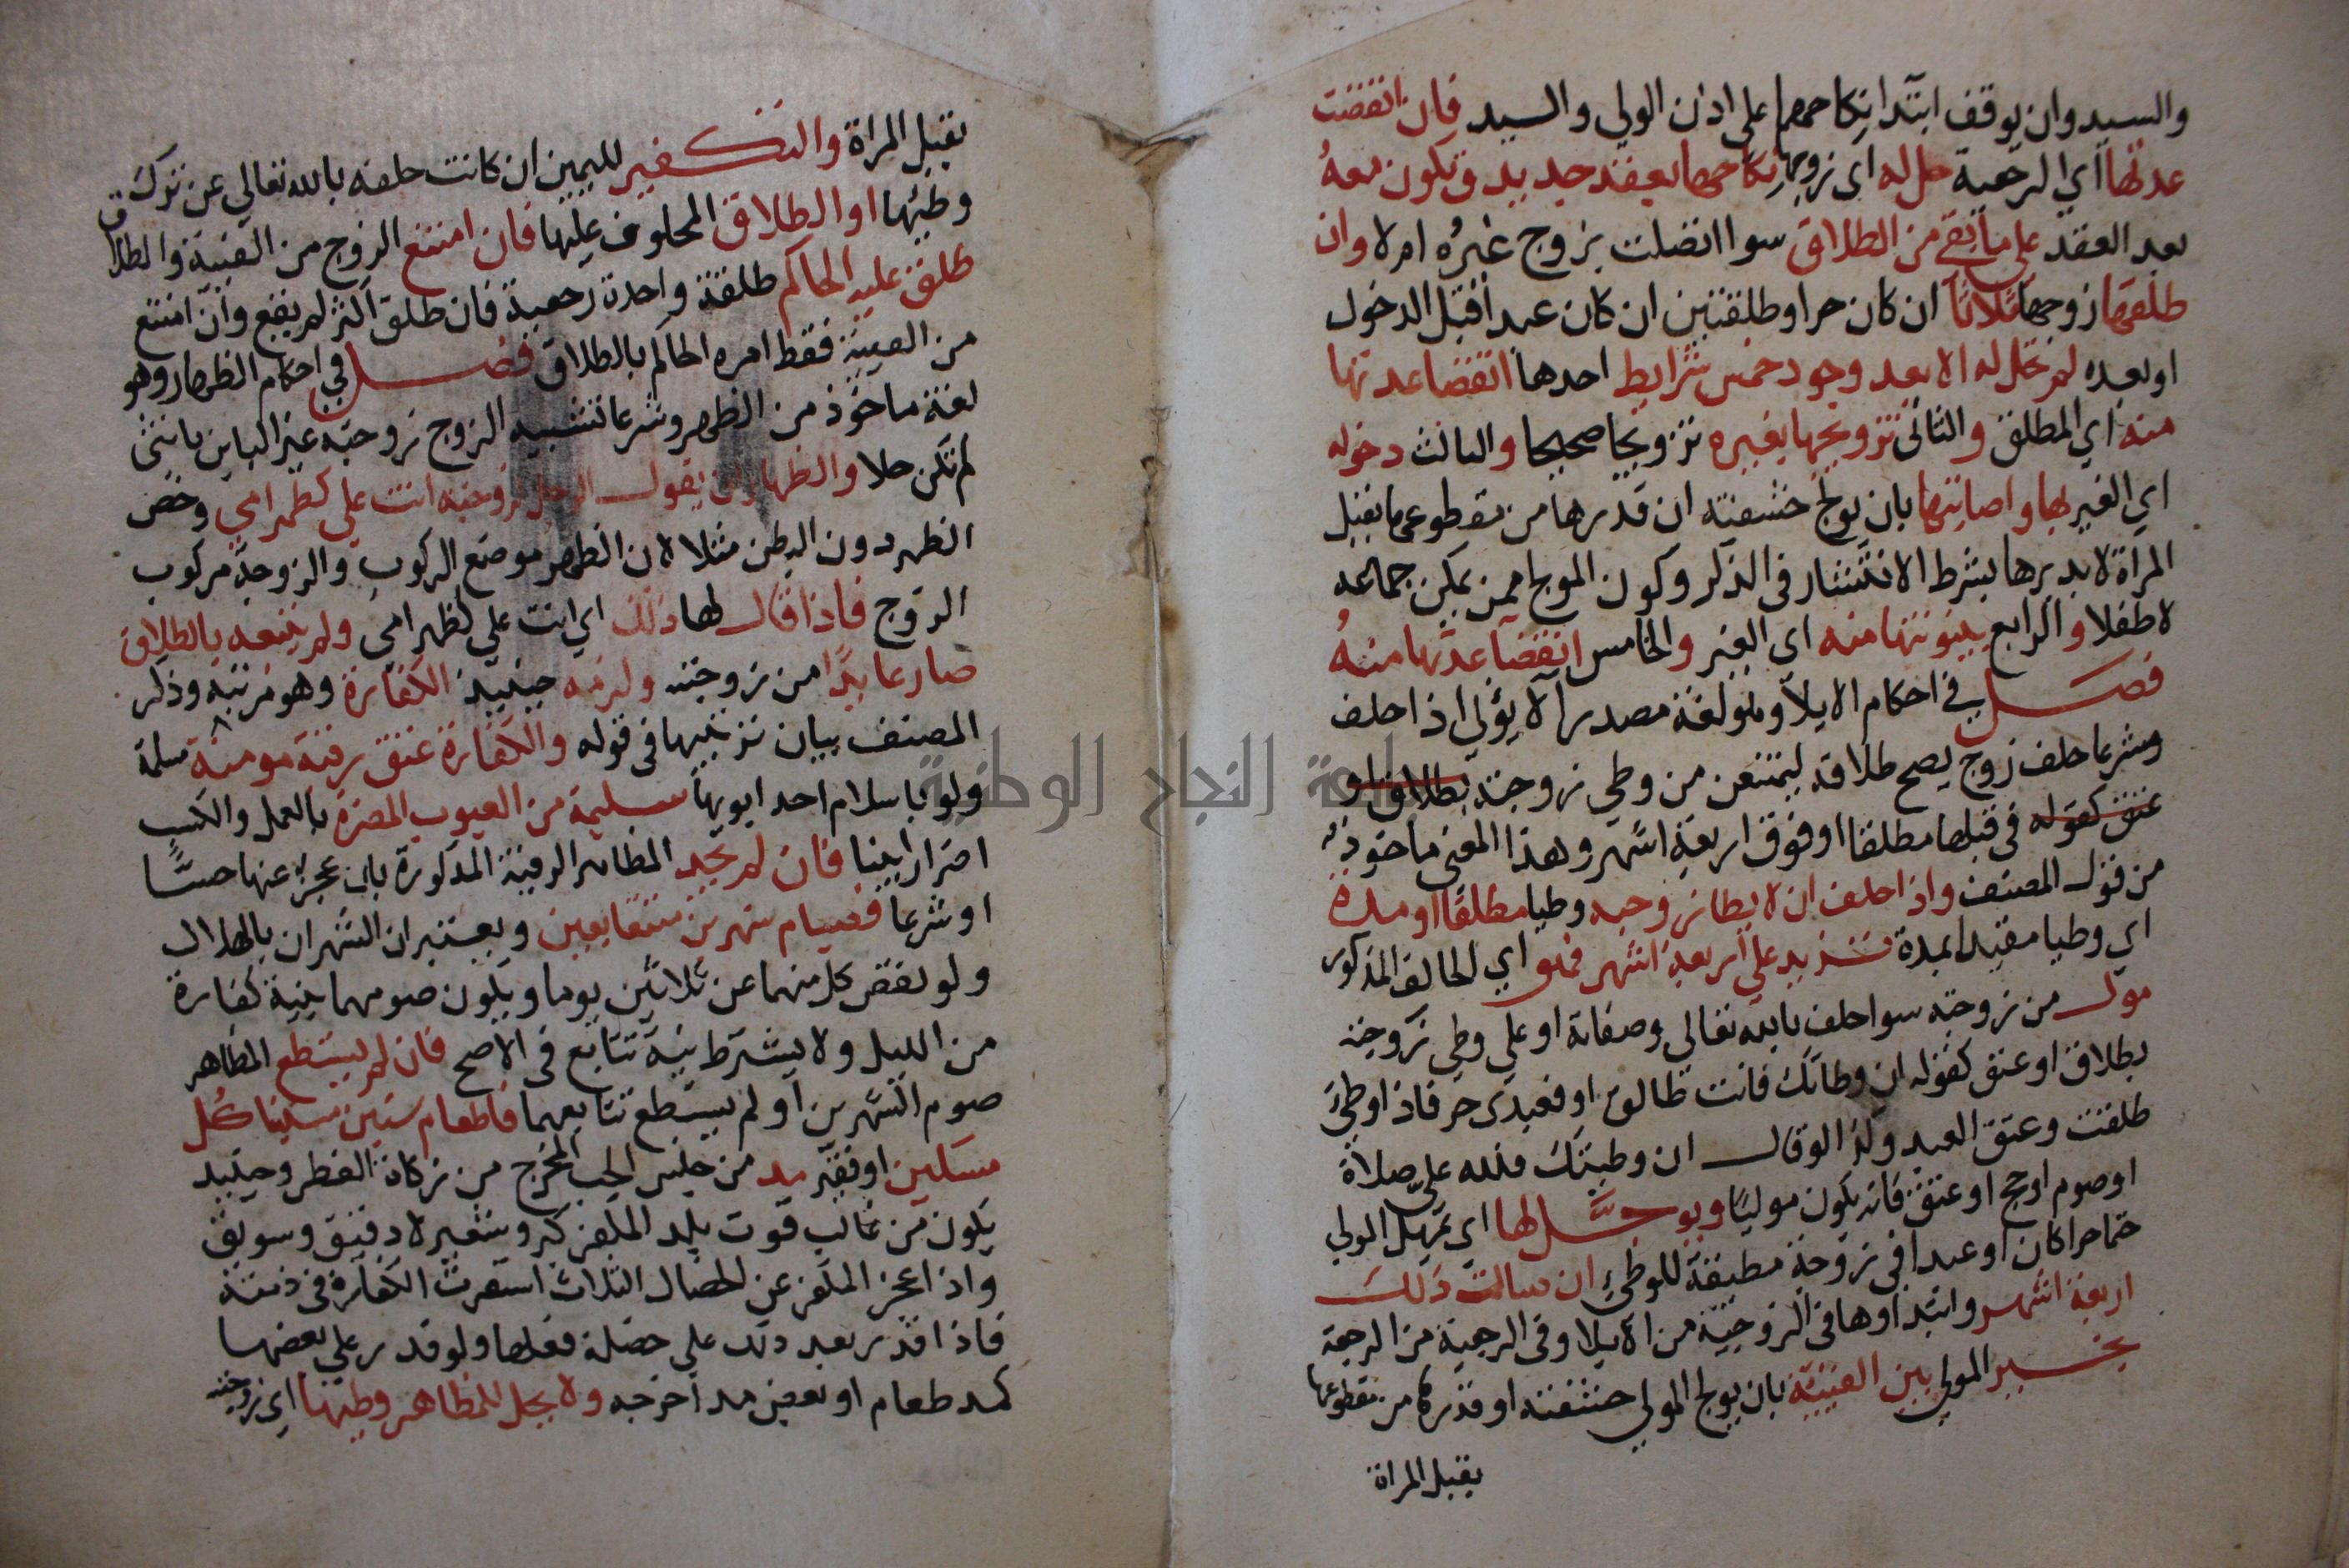 والسيد وان يوقف ابتدا نكاحهما على اذن الولي والسيد فان انقضت
عدتها اي الرجعية حل له اي زوجها نكاحها بعقد جديد وتكون معه
بعد العقد على ما بقي من الطلاق سوا اتصلت بزوج غيره ام لا وان
طلقها زوجها ثلاثا ان كان حرا او طلقتين ان كان عبدا قبل الدخول
او بعده لم تحل له الا بعد وجود خمس شرايط احدها انقضا عدتها
منه اي المطلق والثاني تزويجها بغيره تزويجا صحيحا والثالث دخوله
اي الغير بها واصابتها بان يولج حشفته او قدرها من مقطوعها بقبل
المراة لا بدبرها بشرط الانتشار في الذكر وكون المولج ممن يمكن جماعه
لا طفلا والرابع بينونتها منه اي الغير والخامس انقضا عدتها منه
فصل في احكام الايلا وهو لغة مصدر آلا يؤلي اذا حلف
وشرعا حلف زوج يصح طلاقه ليمتنعن من وطي زوجته بطلاق او
عتق كقوله في قبلها مطلقا او فوق اربعة اشهر وهذا المعنى ماخوذ
من قول المصنف واذا حلف ان لا يطا زوجته وطيا مطلقا او مدة
اي وطيا مقيدا بمدة تزيد على اربعة اشهر فهو اي الحالف المذكور
مول من زوجته سوا حلف بالله تعالى وصفاته او على وطي زوجته
بطلاق او عتق كقوله ان وطاتك فانت طالق او فعبدي حر فاذا وطئ
طلقت وعتق العبد ولذا لو قال ان وطيتك فلله علي صلاة
او صوم او حج او عتق فانه يكون موليا ويوجل لها اي يمهل المولي
حتما حرا كان او عبدا في زوجة مطيقة للوطئ ان سالت ذلك
اربعة اشهر وابتداوها في الزوجية من الايلا وفي الرجعية من الرجعة
يخير المولي بين الفيئة بان يولج المولي حشفته او قدرها من مقطوعها
بقبل المراة
بقبل المراة والتكفير لليمين ان كانت حلفه بالله تعالى عن ترك
وطيها او الطلاق المحلوف عليها فان امتنع الزوج من الفيئة والطلاق
طلق عليه الحاكم طلقة واحدة رجعية فان طلق اكثر لم يقع وان امتنع
من الفيئة فقط امره الحاكم بالطلاق فصل في احكام الظهار وهو
لغة ماخوذ من الظهر وشرعا تشبيه الزوج زوجته غير الباين بانثى
لم تكن حلا والظهار ان يقول الرجل لزوجته انت علي كظهر امي وخص
الظهر دون البطن مثلا لان الظهر موضع الركوب والزوجة مركوب
الزوج فاذا قال لها ذلك اي انت علي كظهر امي ولم يتبعه بالطلاق
صار عايدا من زوجته ولزمه حينيذ الكفارة وهو مرتبة وذكر
المصنف بيان ترتيبها في قوله والكفارة عتق رقبة مومنة مسلمة
ولو باسلام احد ابويها سليمة من العيوب المضرة بالعمل والكسب
اضرارا بينا فان لم يجد المظاهر الرقبة المذكورة بان عجز عنها حسا
او شرعا فصيام شهرين متتابعين ويعتبران الشهران بالهلال
ولو نقص كل منهما عن ثلاثين يوما ويكون صومهما بنية كفارة
من الليل ولا يشترط نية تتابع في الاصح فان لم يستطع المظاهر
صوم الشهرين او لم يستطع تتابعهما فاطعام ستين مسكينا كل
مسكين او فقير مد من جنس الحب المخرج من زكاة الفطر وحينيذ
يكون من غالب قوت بلد المكفر كبر وشعير لا دقيق وسويق
واذا عجز المكفر عن الخصال الثلاث استقرت الكفارة في ذمته
فاذا قدر بعد ذلك على خصلة فعلها ولو قدر على بعضها
كمد طعام او بعض مد اخرجه ولا يحل للمظاهر وطيها اي زوجته
جامعة النجاح الوطنية